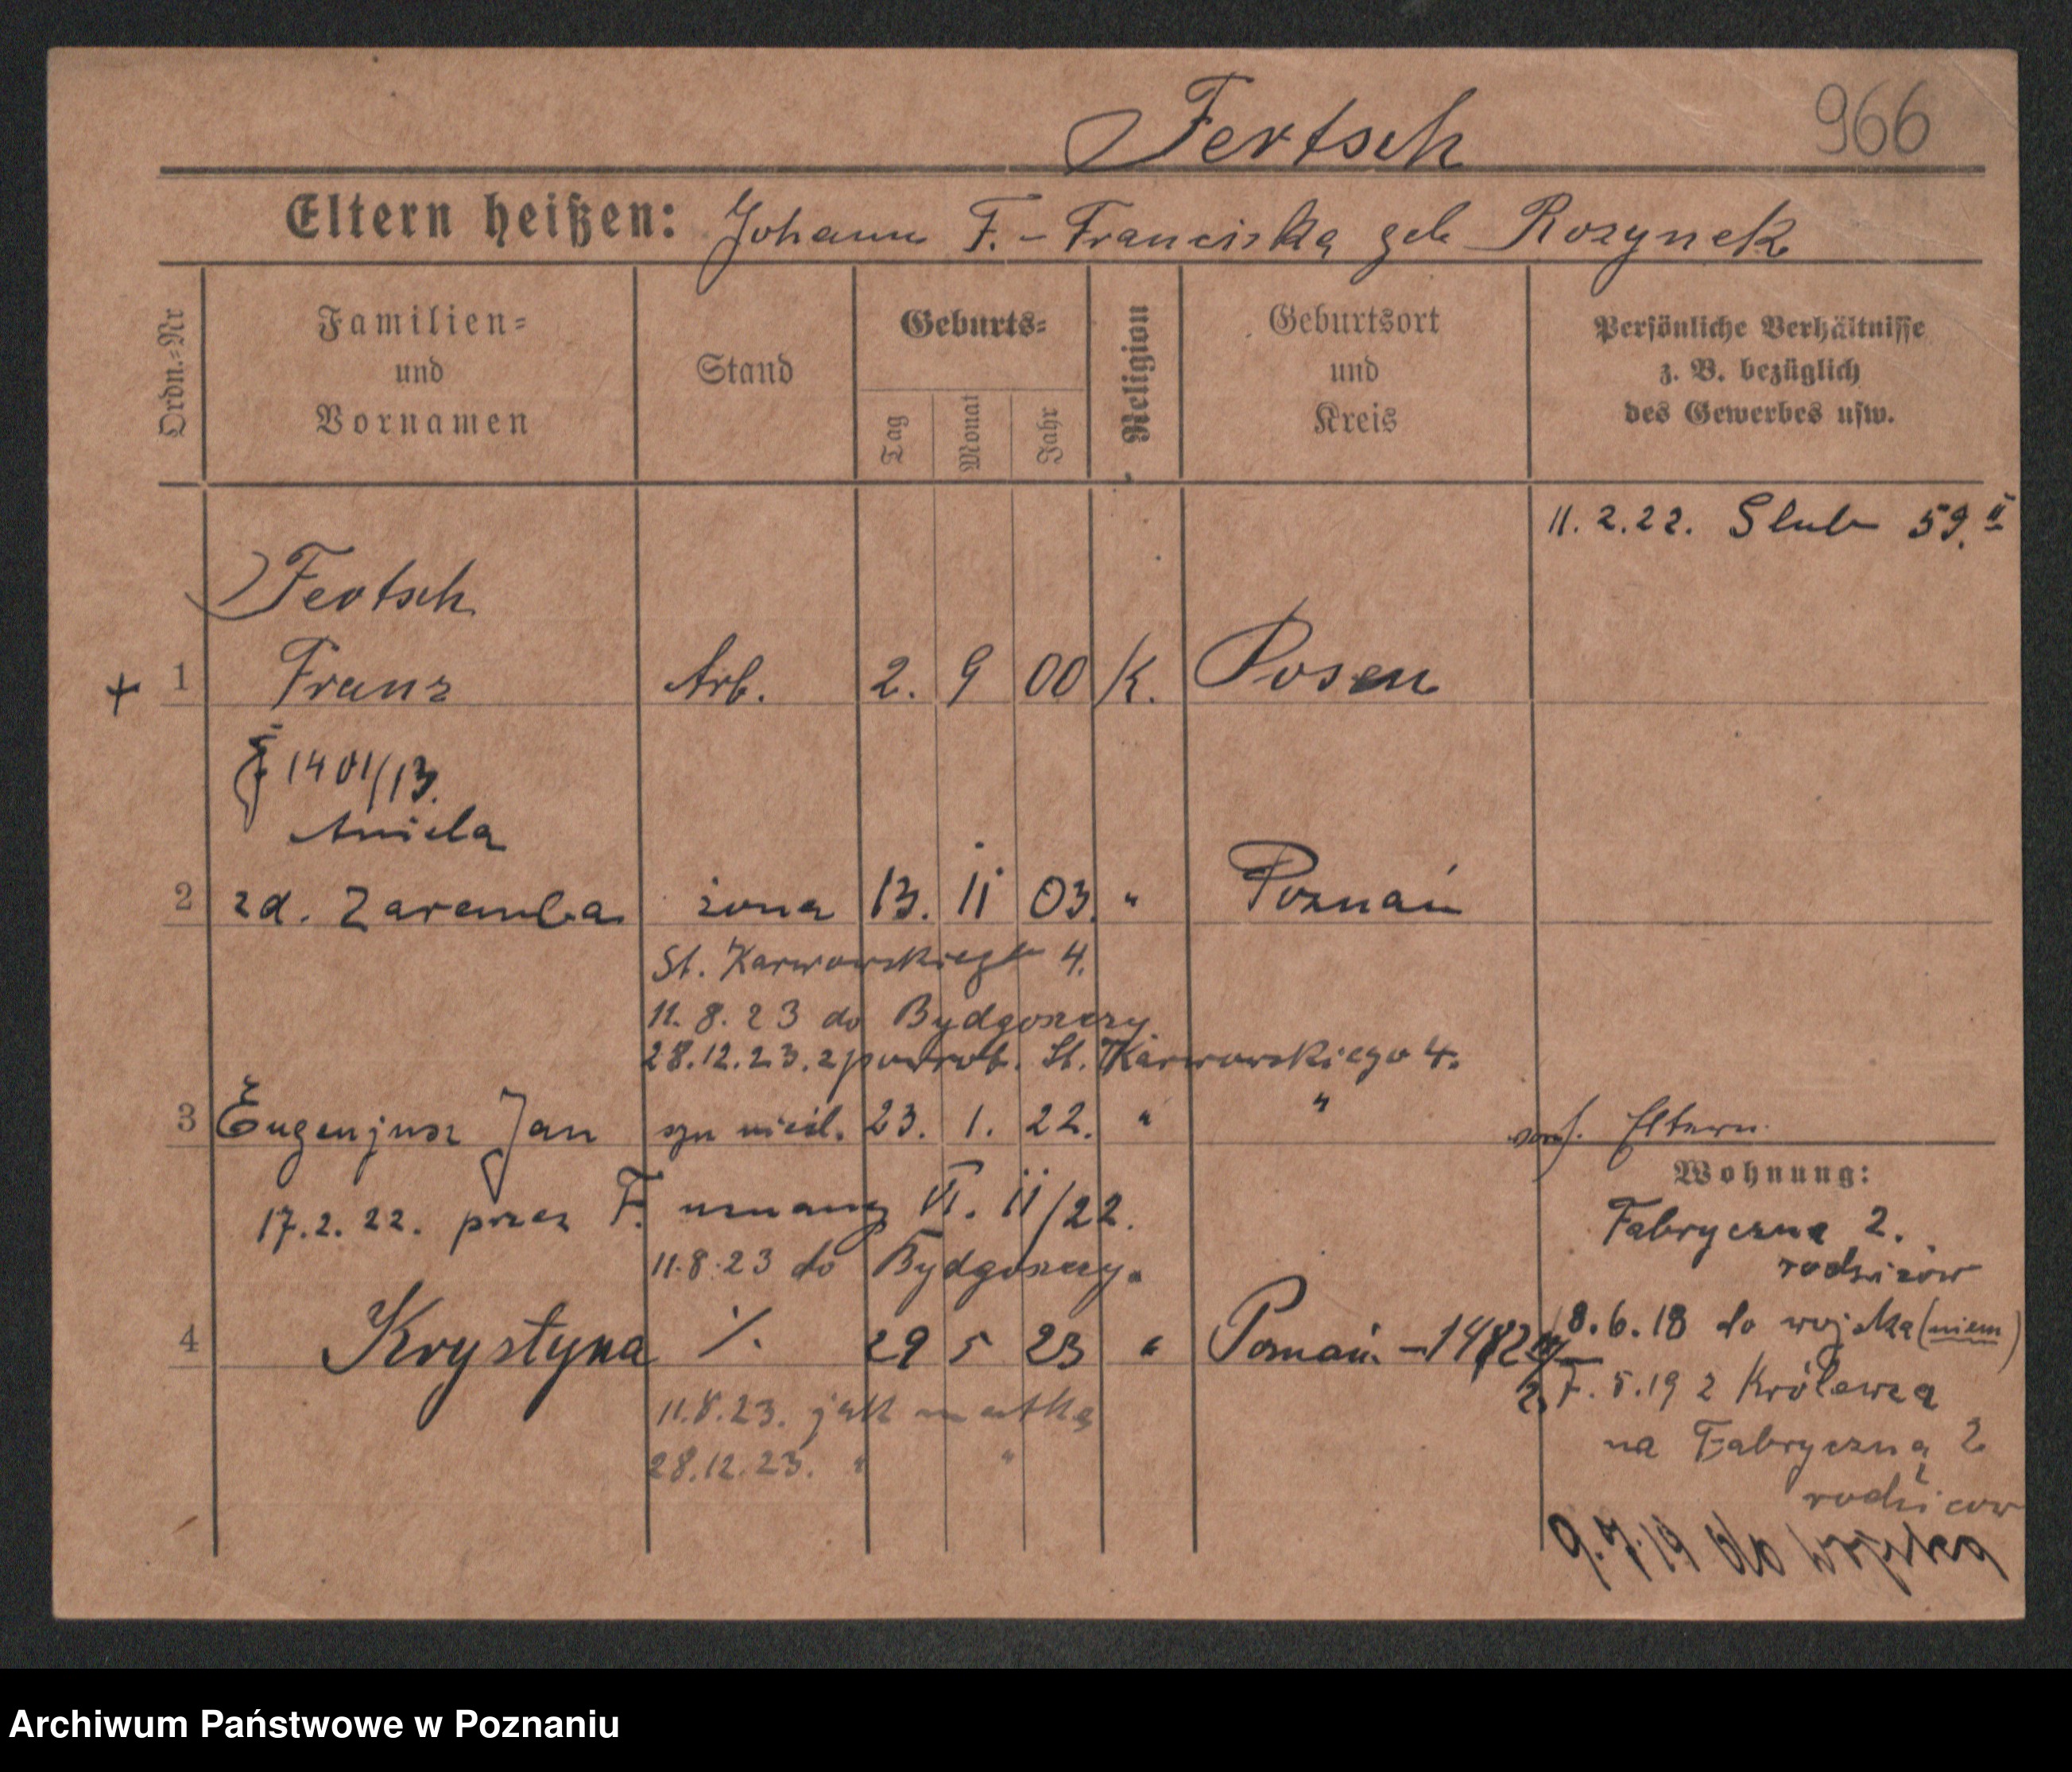 966
Fertsch
Eltern heißen: Johann F. - Franciska geb Rozynek
Ordn.=Nr
Familien= und Vornamen
Stand
Geburts=
Tag
Monat
Jahr
Religion
Geburtsort und Kreis
Persönliche Verhältnisse
z. B. bezüglich
des Gewerbes usw.
11. 2. 22. Slub 59. II
Fertsch
+ 1 Franz Arb. 2. 9 00 K. Posen
1401/13.
Aniela
2 zd. Zaremba żona 13. II 03. " Poznań
St. Karwowskiego 4.
11. 8. 23 do Bydgoszczy
28.12.23. z powrot. St. Karwowskiego 4.
3 Eugenjusz Jan syn nieśl. 23. 1. 22. " " Eltern.
17. 2. 22. przez F. uznany VI. II/22.
11.8.23 do Bydgoszczy.
4 Krystyna ./. 29 5 23 " Poznań. - 1482
11.8.23. jak matka
28.12.23. " "
Wohnung:
Fabryczna 2.
rodziców
18.6.18 do wojska (niem)
27.5.19 z Królewca
na Fabryczną 2
rodziców
9.7.19 do wojska
Archiwum Państwowe w Poznaniu